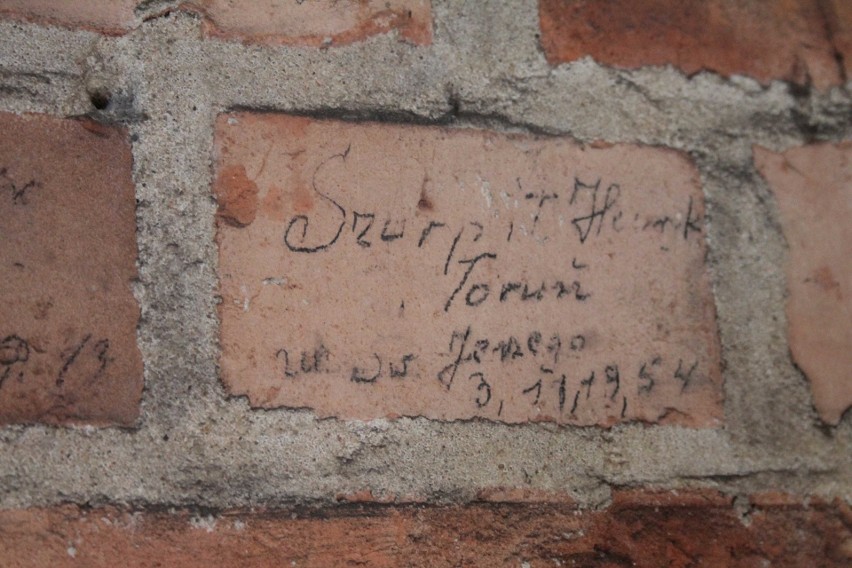 Szurpit Henryk
Toruń
ul Św Jerzego
3, 11, 19, 54
13